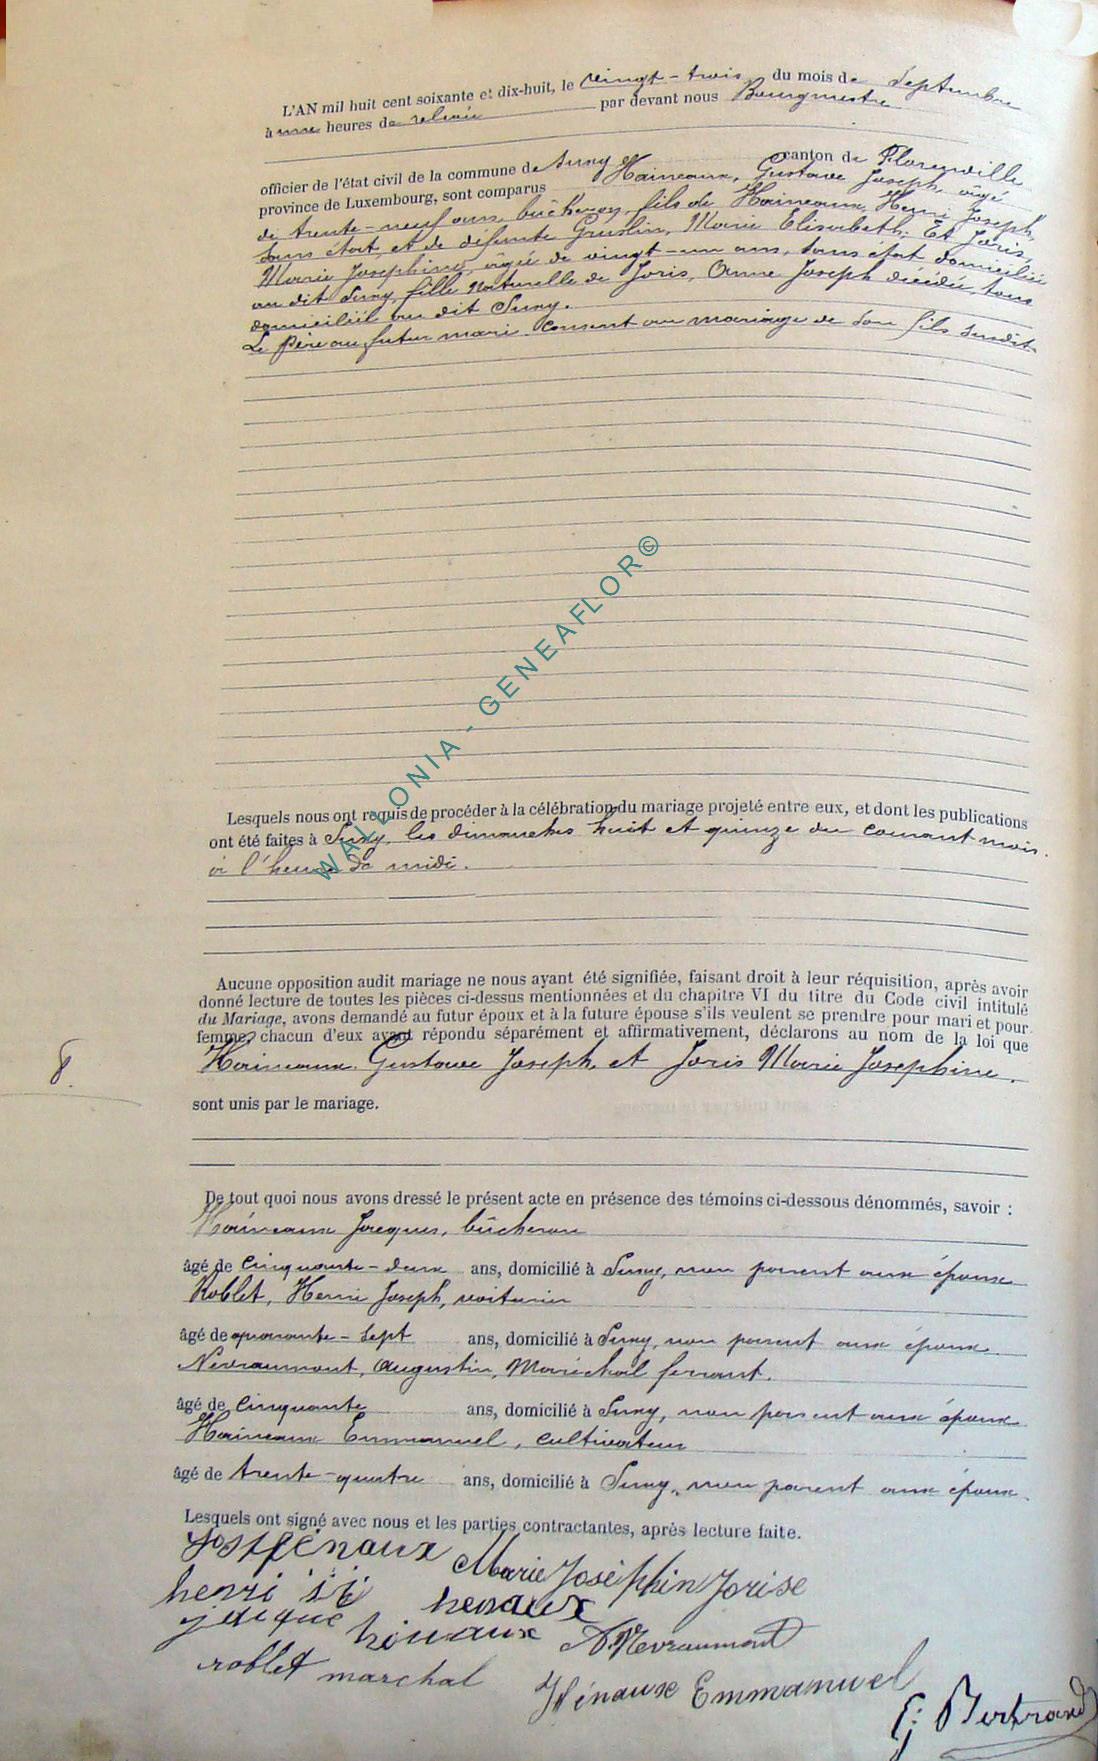 L'AN mil huit cent soixante et dix-huit, le vingt-trois du mois de Septembre
à une heures de relevée par devant nous Bourgmestre
officier de l'état civil de la commune de Suxy canton de Florenville
province de Luxembourg, sont comparus Haineaux, Gustave Joseph, âgé
de trente-neuf ans, bûcheron, fils de Haineaux, Henri Joseph,
sans état, et de défunte Gruslin, Marie Elisabeth. Et Joris,
Marie Josephine, âgée de vingt-un ans, sans état domiciliée
au dit Suxy, fille naturelle de Joris, Anne Joseph décédée, tous
domiciliés au dit Suxy.
Le Père au futur mari consent au mariage de son fils susdit
Lesquels nous ont requis de procéder à la célébration du mariage projeté entre eux, et dont les publications
ont été faites à Suxy, les dimanches huit et quinze du courant mois
à l'heure de midi.
Aucune opposition audit mariage ne nous ayant été signifiée, faisant droit à leur réquisition, après avoir
donné lecture de toutes les pièces ci-dessus mentionnées et du chapitre VI du titre du Code civil intitulé
du Mariage, avons demandé au futur époux et à la future épouse s'ils veulent se prendre pour mari et pour
femme, chacun d'eux ayant répondu séparément et affirmativement, déclarons au nom de la loi que
Haineaux Gustave Joseph et Joris Marie Josephine.
8
sont unis par le mariage.
De tout quoi nous avons dressé le présent acte en présence des témoins ci-dessous dénommés, savoir :
Haineaux Jacques, bûcheron
âgé de cinquante-deux ans, domicilié à Suxy, non parent aux époux
Roblet, Henri Joseph, voiturier
âgé de quarante-sept ans, domicilié à Suxy, non parent aux époux
Nevraumont, Augustin, Maréchal ferrant.
âgé de cinquante ans, domicilié à Suxy, non parent aux époux
Haineaux Emmanuel, cultivateur
âgé de trente-quatre ans, domicilié à Suxy, non parent aux époux.
Lesquels ont signé avec nous et les parties contractantes, après lecture faite.
Marie Joséphin Jorise
henri henaux
jacque hénaux A Nevraumont
roblet marchal Hénaux Emmanuel
Bertrand
WALLONIA - GENEAFLOR©